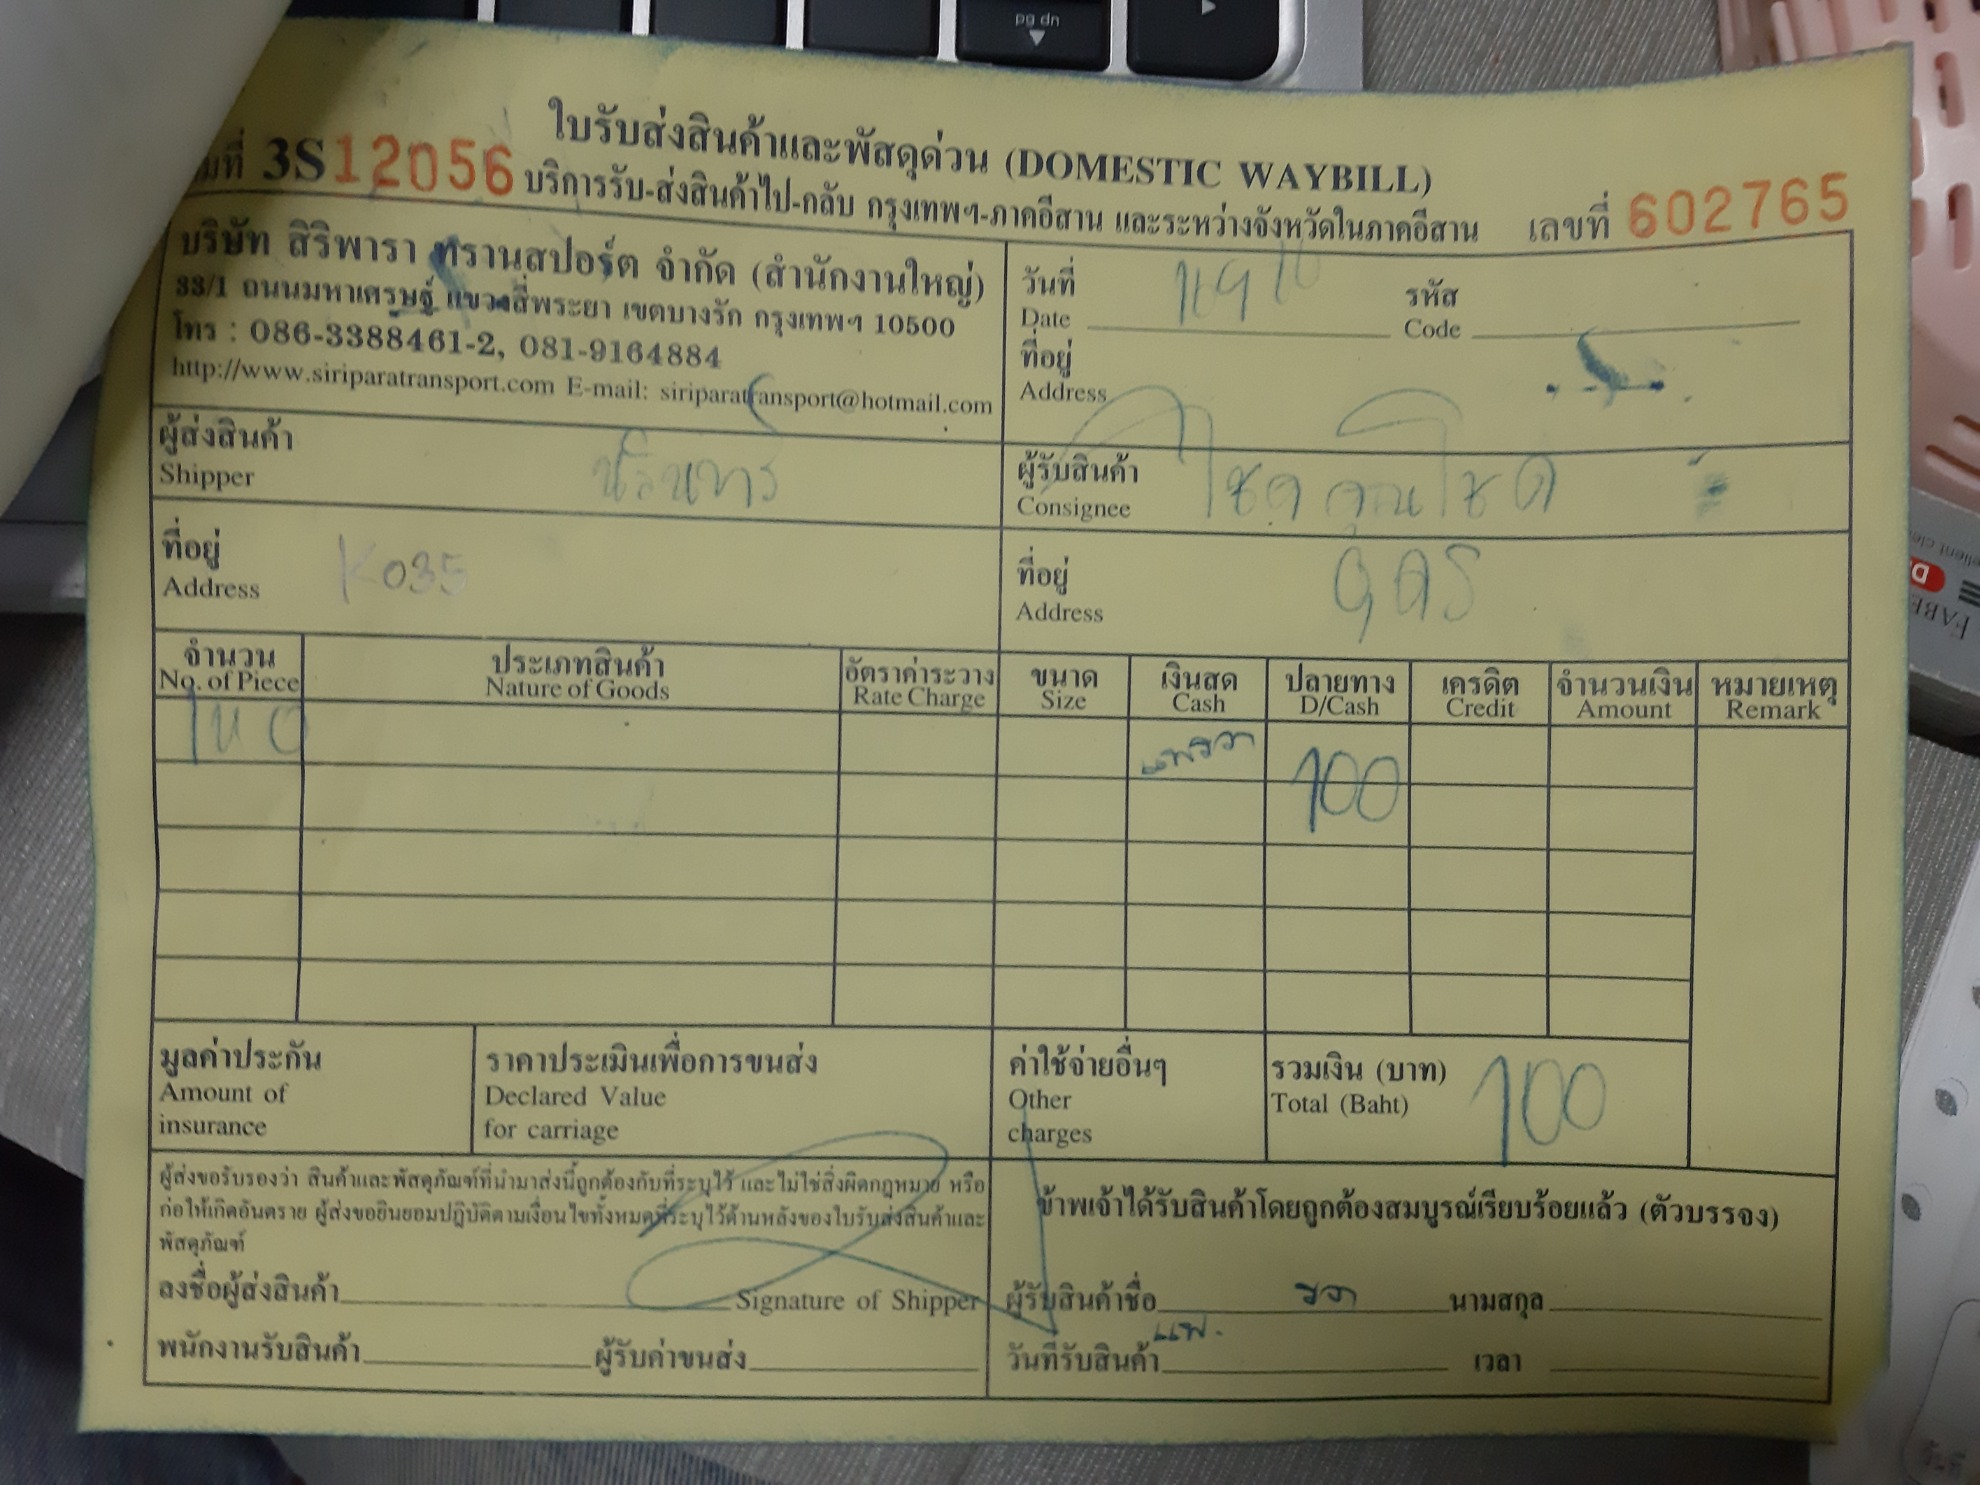 pg dn
ใบรับส่งสินค้าและพัสดุด่วน (DOMESTIC WAYBILL)
มที่ 3S12056 บริการรับ-ส่งสินค้าไป-กลับ กรุงเทพฯ-ภาคอีสาน และระหว่างจังหวัดในภาคอีสาน เลขที่ 602765
บริษัท สิริพารา ทรานสปอร์ต จำกัด (สำนักงานใหญ่)
33/1 ถนนมหาเศรษฐ์ แขวงสี่พระยา เขตบางรัก กรุงเทพฯ 10500
โทร : 086-3388461-2, 081-9164884
http://www.siriparatransport.com E-mail: siriparatransport@hotmail.com
วันที่ รหัส
Date Code
ที่อยู่
Address
ผู้ส่งสินค้า
Shipper
ผู้รับสินค้า โชคคูณโชค
Consignee
ที่อยู่ K035
Address
ที่อยู่ อุดร
Address
จำนวน ประเภทสินค้า อัตราค่าระวาง ขนาด เงินสด ปลายทาง เครดิต จำนวนเงิน หมายเหตุ
No. of Piece Nature of Goods Rate Charge Size Cash D/Cash Credit Amount Remark
100
มูลค่าประกัน
Amount of
insurance
ราคาประเมินเพื่อการขนส่ง
Declared Value
for carriage
ค่าใช้จ่ายอื่นๆ
Other
charges
รวมเงิน (บาท) 100
Total (Baht)
ผู้ส่งขอรับรองว่า สินค้าและพัสดุภัณฑ์ที่นำมาส่งนี้ถูกต้องกับที่ระบุไว้ และไม่ใช่สิ่งผิดกฎหมาย หรือ
ก่อให้เกิดอันตราย ผู้ส่งขอยินยอมปฏิบัติตามเงื่อนไขทั้งหมดที่ระบุไว้ด้านหลังของใบรับส่งสินค้าและ
พัสดุภัณฑ์
ลงชื่อผู้ส่งสินค้า Signature of Shipper
พนักงานรับสินค้า ผู้รับค่าขนส่ง
ข้าพเจ้าได้รับสินค้าโดยถูกต้องสมบูรณ์เรียบร้อยแล้ว (ตัวบรรจง)
ผู้รับสินค้าชื่อ นามสกุล
วันที่รับสินค้า เวลา